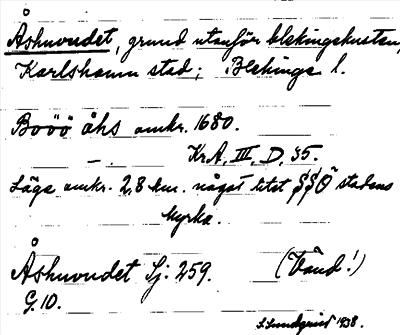 Åshuvudet, grund utanför blekingskusten,
Karlshamn stad; Blekinge l.
Booö åhs omkr. 1680.
— KrA, III, D, 35.
Läge omkr. 2,8 km. något litet SSÖ stadens
kyrka.
Åshuvudet Sj. 259. (Vänd!)
G. 10.
S. Sundqvist 1938.